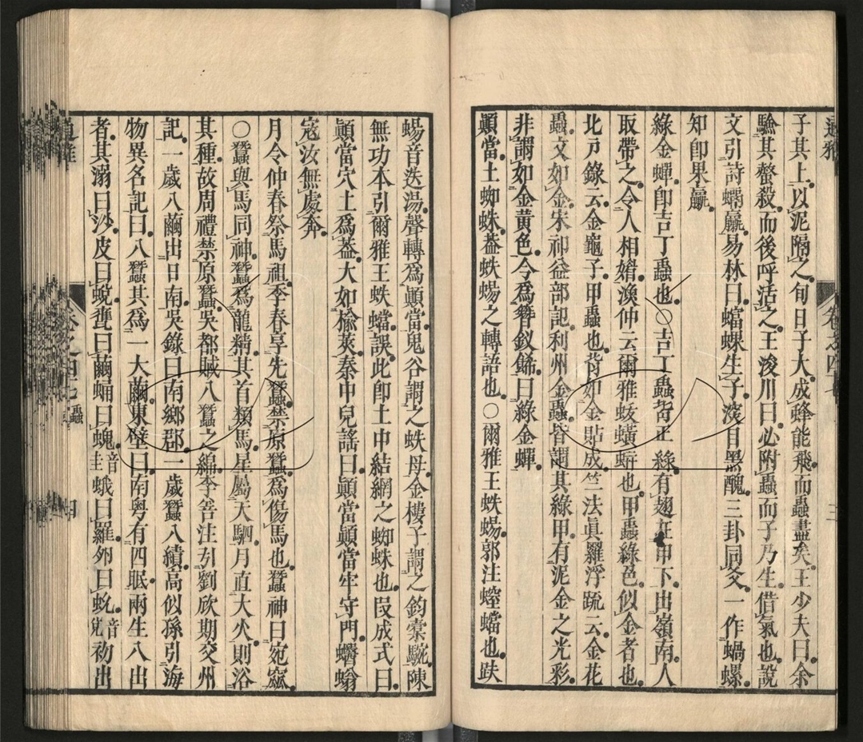 通雅
卷之四十
三
子其上以泥隔之旬日子大成蜂能飛而蟲盡矣王少夫曰余
驗其螫殺而後呼活之王浚川曰必附蟲而子乃生借氣也說
文引詩蠮蠃易林曰蟷蜾生子深目黑醜三卦同爻一作蝸螺
知卽果蠃
綠金蟬卽吉丁蟲也○吉丁蟲背正綠有翅在甲下出嶺南人
取帶之令人相媚渙仲云爾雅蛂蟥蛢也甲蟲綠色似金者也
北戶錄云金龜子甲蟲也背如金貼成竺法眞羅浮疏云金花
蟲文如金宋祁益部記利州金蟲皆謂其綠甲有泥金之光彩
非謂如金黃色今爲簪釵飾曰綠金蟬
顚當土蜘蛛蓋蛈蝪之轉語也○爾雅王蛈蝪郭注螲蟷也蛈
蝪音迭湯聲轉爲顚當鬼谷謂之蛈母金樓子謂之鈞橐駝陳
無功本引爾雅王蛈蟷誤此卽土中結網之蜘蛛也段成式曰
顚當穴土爲葢大如榆莢秦中兒謠曰顚當顚當牢守門蠮螉
寇汝無處奔
月令仲春祭馬祖季春享先蠶禁原蠶爲傷馬也蠶神曰宛窳
○蠶與馬同神蠶爲龍精其首類馬星屬天駟月直大火則浴
其種故周禮禁原蠶吳都賦八蠶之綿李善注引劉欣期交州
記一歲八繭出日南吳錄曰南鄉郡一歲蠶八績高似孫引海
物異名記曰八蠶其爲一大繭東壁曰南粤有四眠兩生八出
者其溺曰沙皮曰蛻甕曰繭蛹曰螝音圭蛾曰羅卵曰䖢音初出
通雅
卷之四七 蟲
四